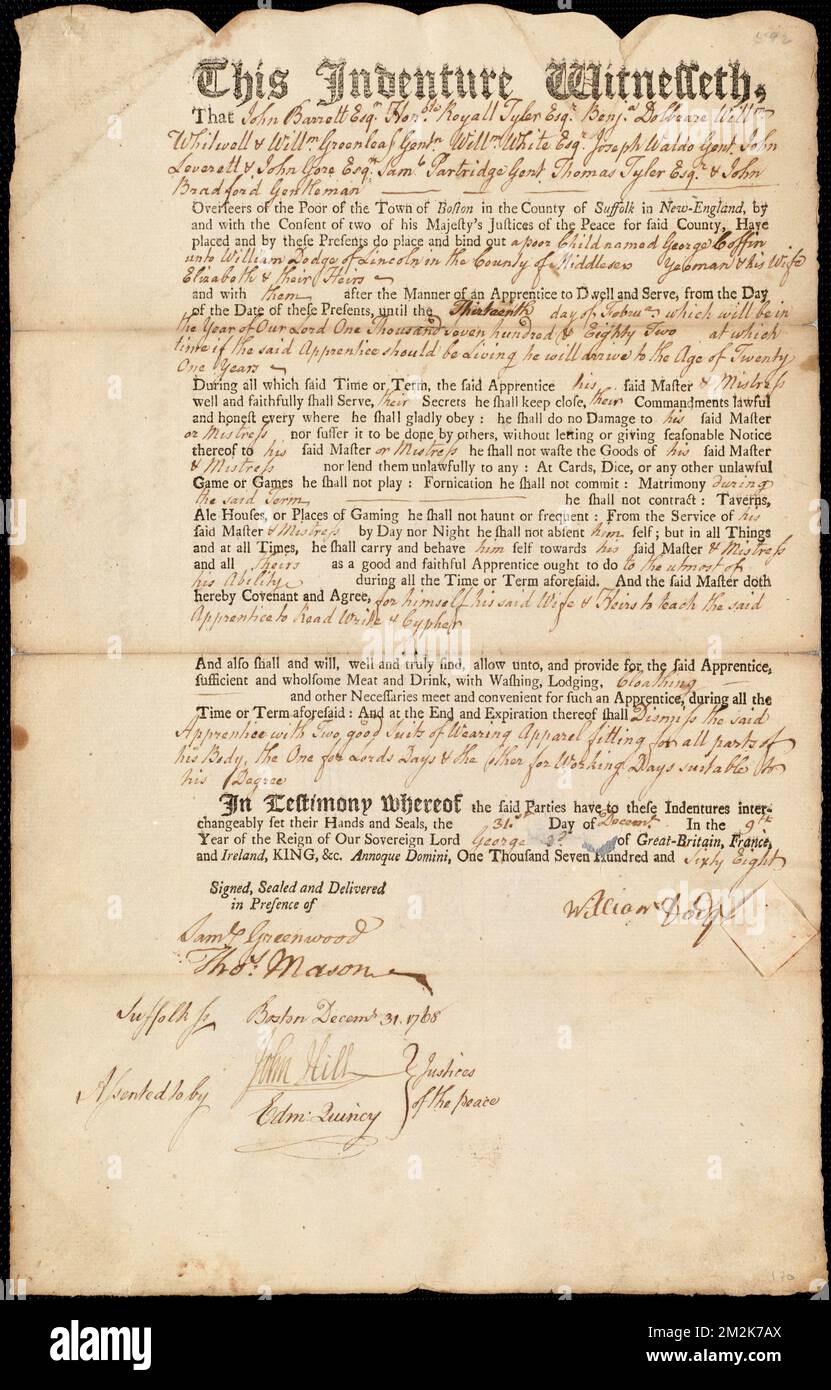 592
This Indenture Witnesseth,
That John Barrett Esqr. Honble. Royall Tyler Esqr. Benja. Dolbeare Willm
Whitwell & Willm Greenleaf Gentn. Willm White Esqr. Joseph Waldo Gent. John
Leverett & John Gore Esqrs. Saml. Partridge Gent. Thomas Tyler Esqr. & John
Bradford Gentleman
Overseers of the Poor of the Town of Boston in the County of Suffolk in New-England, by
and with the Consent of two of his Majesty's Justices of the Peace for said County, Have
placed and by these Presents do place and bind out a poor Child named George Coffin
unto William Dodge of Lincoln in the County of Middlesex Yeoman & his Wife
Elizabeth & their Heirs
and with them after the Manner of an Apprentice to Dwell and Serve, from the Day
of the Date of these Presents, until the Thirteenth day of Febru.. which will be in
the Year of Our Lord One Thousand Seven hundred & Eighty Two at which
time if the said Apprentice should be Living he will arrive to the Age of Twenty
One Years
During all which said Time or Term, the said Apprentice his said Master & Mistress
well and faithfully shall Serve, their Secrets he shall keep close, their Commandments lawful
and honest every where he shall gladly obey : he shall do no Damage to his said Master
or Mistress nor suffer it to be done by others, without letting or giving seasonable Notice
thereof to his said Master or Mistress he shall not waste the Goods of his said Master
& Mistress nor lend them unlawfully to any : At Cards, Dice, or any other unlawful
Game or Games he shall not play : Fornication he shall not commit : Matrimony during
the said Term he shall not contract : Taverns,
Ale Houses, or Places of Gaming he shall not haunt or frequent : From the Service of his
said Master & Mistress by Day nor Night he shall not absent him self ; but in all Things
and at all Times, he shall carry and behave him self towards his said Master & Mistress
and all Theirs as a good and faithful Apprentice ought to do to the utmost of
his Ability during all the Time or Term aforesaid. And the said Master doth
hereby Covenant and Agree, for himself his said Wife & Heirs to teach the said
Apprentice to Read Write & Cypher
And also shall and will, well and truly find, allow unto, and provide for the said Apprentice,
sufficient and wholsome Meat and Drink, with Washing, Lodging, Cloathing
and other Necessaries meet and convenient for such an Apprentice, during all the
Time or Term aforesaid : And at the End and Expiration thereof shall Dismiss the said
Apprentice with Two good Suits of Wearing Apparel fitting for all parts of
his Body, the One for Lords Days & the other for Working Days suitable to
his Degree
In Testimony Whereof the said Parties have to these Indentures inter-
changeably set their Hands and Seals, the 31st Day of Decemr. In the 9th
Year of the Reign of Our Sovereign Lord George 3d. of Great-Britain, France,
and Ireland, KING, &c. Annoque Domini, One Thousand Seven Hundred and Sixty Eight
Signed, Sealed and Delivered
in Presence of
William Dodge
Saml. Greenwood
Thos. Mason
Suffolk ss Boston Decemr. 31. 1768
Assented to by John Hill Justices
Edm: Quincy of the peace
170
alamy
Image ID: 2M2K7AX
www.alamy.com